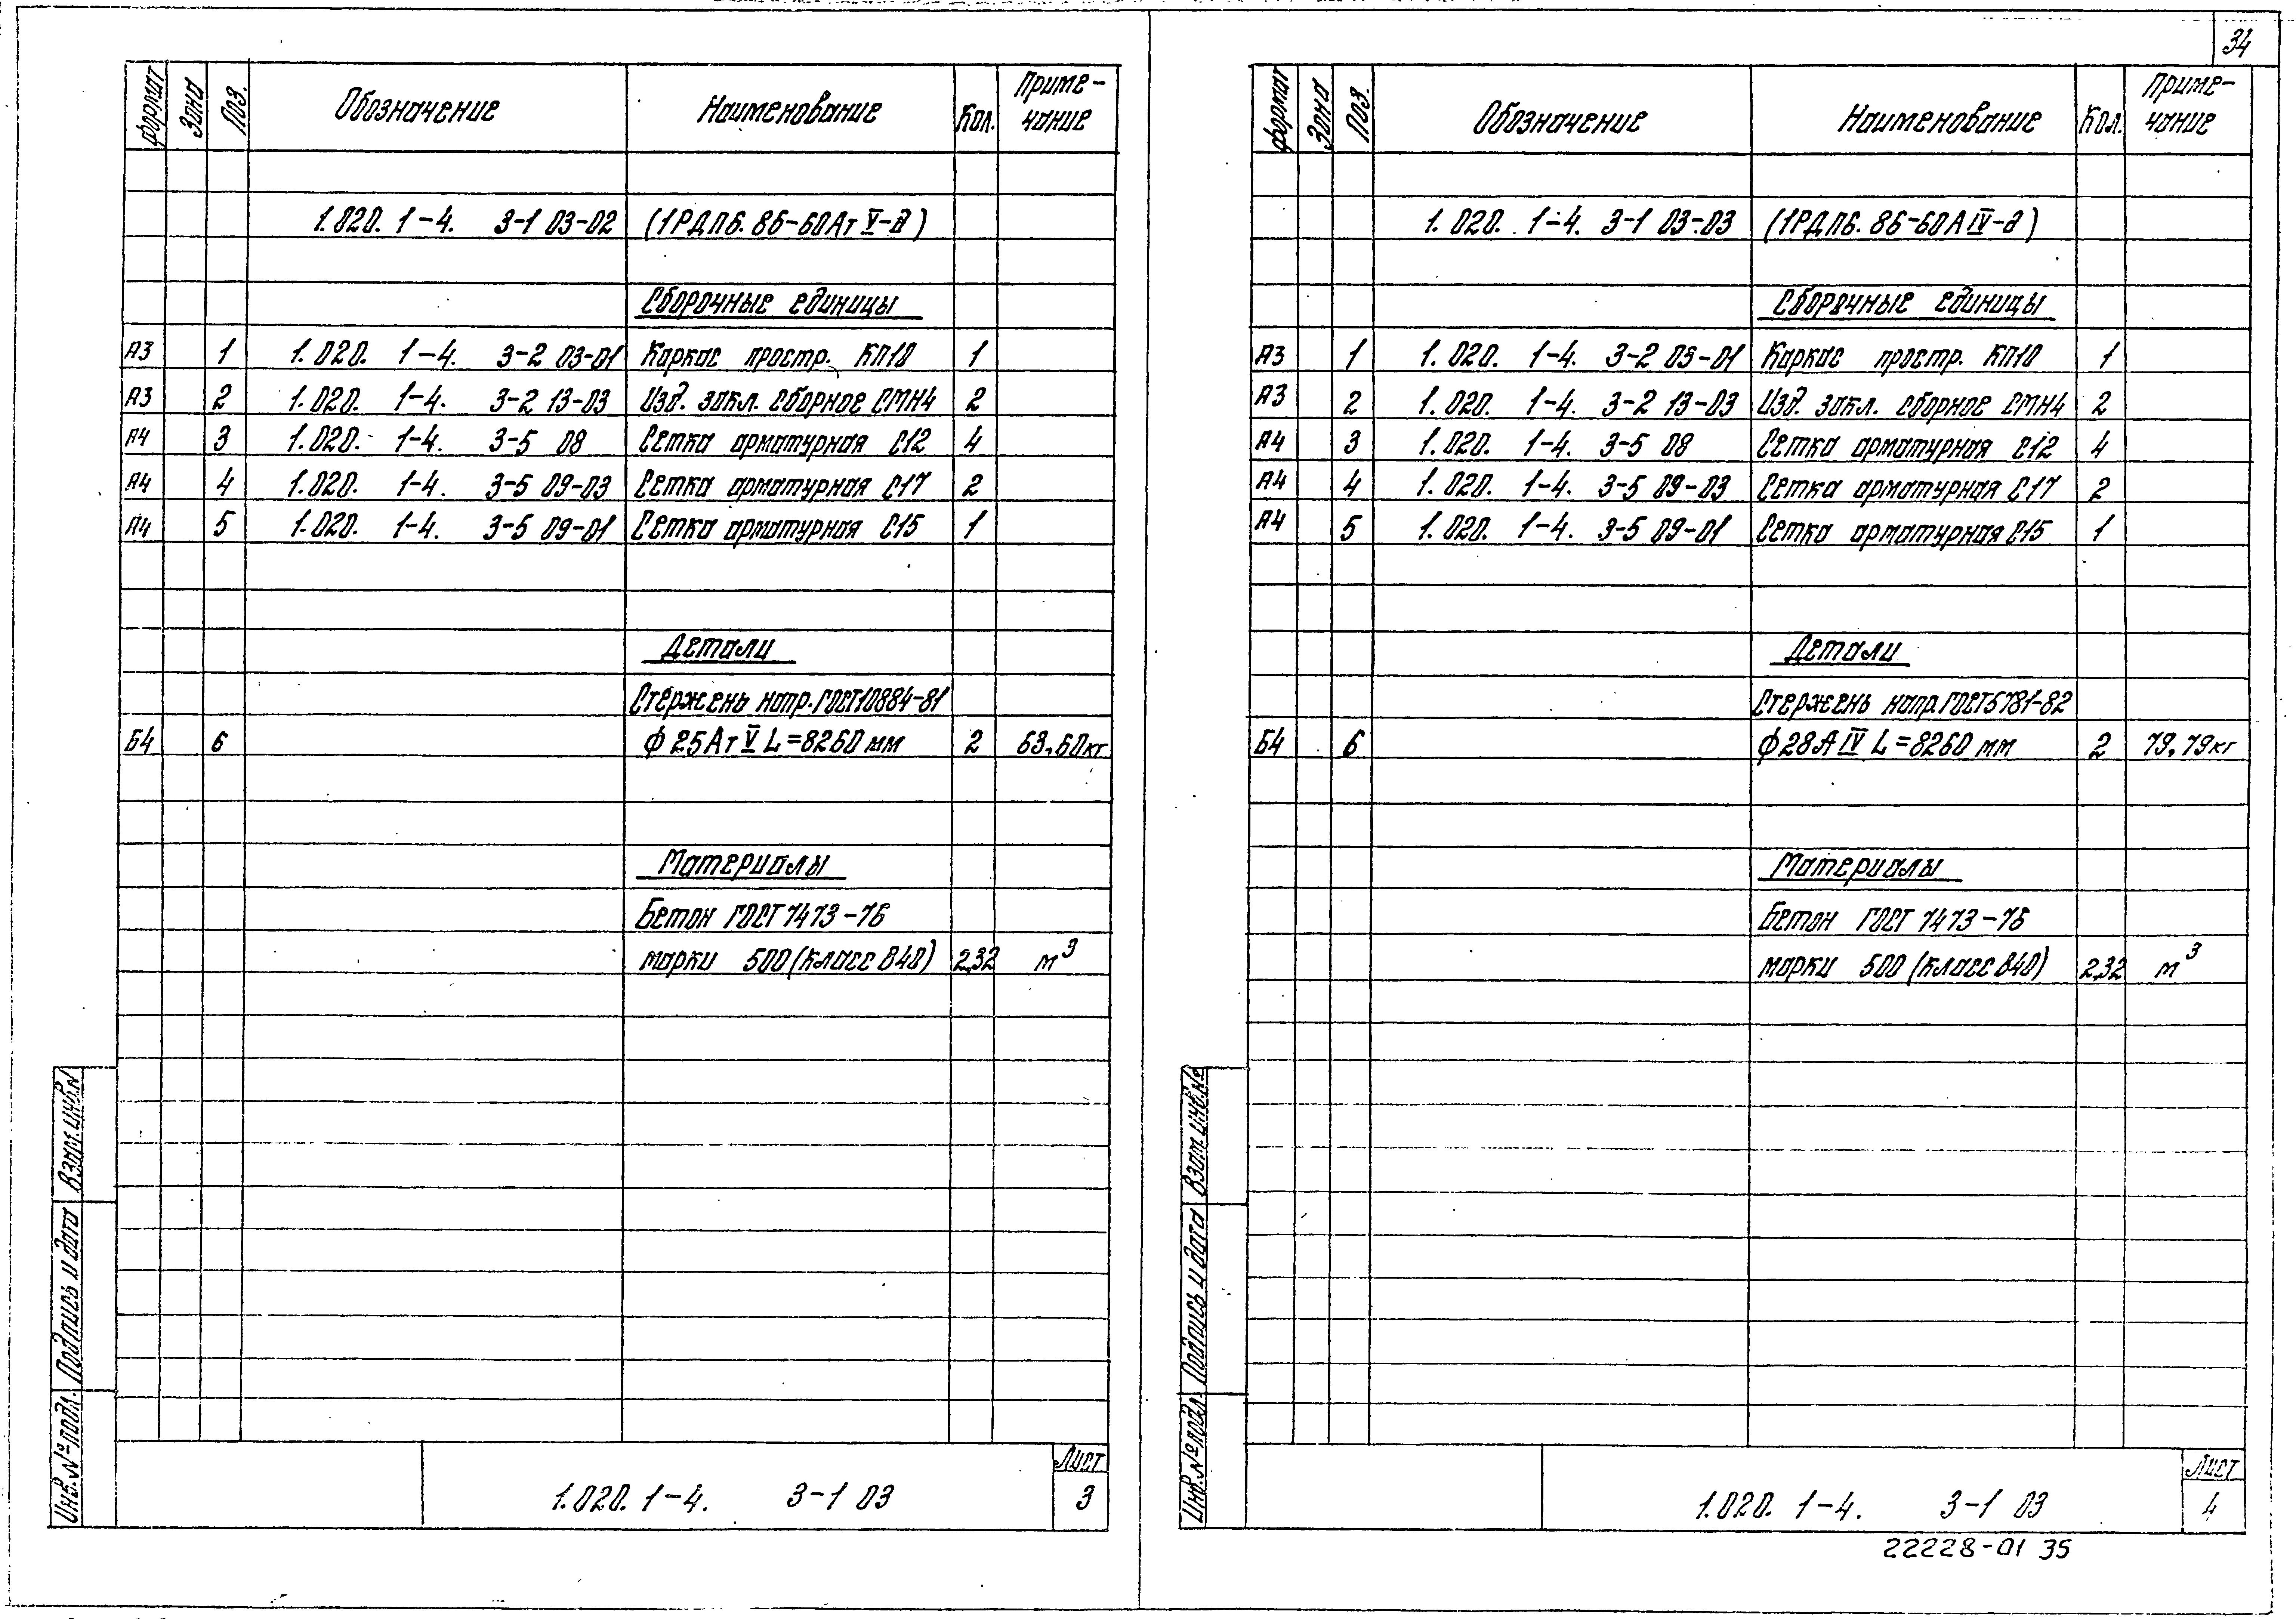 34
Формат Зона Поз. Обозначение Наименование Кол. Приме-
чание
1.020.1-4. 3-1 03-02 (1РДП6.86-60АтV-а)
Сборочные единицы
А3 1 1.020.1-4. 3-2 03-01 Каркас простр. КП10 1
А3 2 1.020.1-4. 3-2 13-03 Изд. закл. сборное СМН4 2
А4 3 1.020.1-4. 3-5 08 Сетка арматурная С12 4
А4 4 1.020.1-4. 3-5 09-03 Сетка арматурная С17 2
А4 5 1.020.1-4. 3-5 09-01 Сетка арматурная С15 1
Детали
Стержень напр. ГОСТ10884-81
Б4 6 ϕ25АтV L=8260мм 2 63,60кг
Материалы
Бетон ГОСТ 7473-76
марки 500 (класс В40) 2,32 м³
Взам. инв.N
Подпись и дата
Инв.№ подл.
1.020.1-4. 3-1 03
Лист
3
Формат Зона Поз. Обозначение Наименование Кол. Приме-
чание
1.020.1-4. 3-1 03-03 (1РДП6.86-60АIV-а)
Сборочные единицы
А3 1 1.020.1-4. 3-2 03-01 Каркас простр. КП10 1
А3 2 1.020.1-4. 3-2 13-03 Изд. закл. сборное СМН4 2
А4 3 1.020.1-4. 3-5 08 Сетка арматурная С12 4
А4 4 1.020.1-4. 3-5 09-03 Сетка арматурная С17 2
А4 5 1.020.1-4. 3-5 09-01 Сетка арматурная С15 1
Детали
Стержень напр. ГОСТ5781-82
Б4 6 ϕ28АIV L=8260мм 2 79,79кг
Материалы
Бетон ГОСТ 7473-76
марки 500 (класс В40) 2,32 м³
Взам. инв.№
Подпись и дата
Инв.№ подл.
1.020.1-4. 3-1 03
Лист
4
22228-01 35